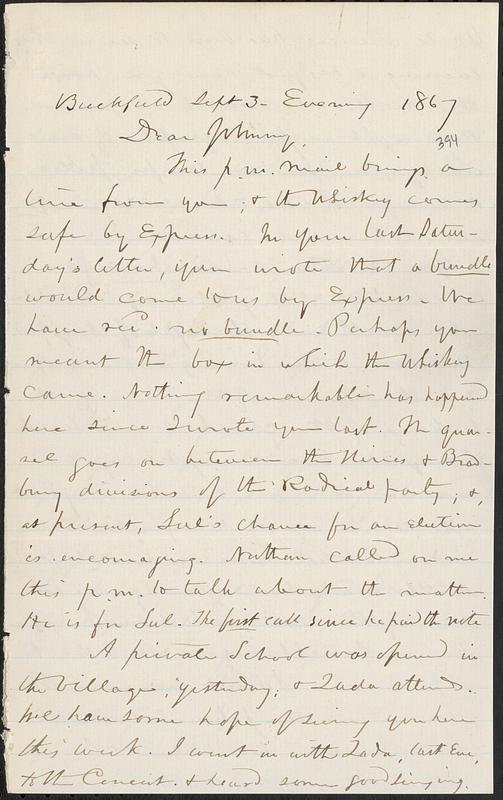 Buckfield Sept 3 - Evening 1867
394
Dear Johnny,
This p.m. mail brings a
line from you; & the Whiskey comes
safe by Express. In your last Satur-
day's letter, you wrote that a bundle
would come to us by Express - We
have rec'd no bundle. Perhaps you
meant the box in which the Whiskey
came. Nothing remarkable has happend
here since I wrote you last. The quar-
rel goes on between the & Brad-
bury divisions of the Radical party; &,
at present, Sul's chance for an election
is encouraging. Nathan called on me
this p.m. to talk about the matter.
He is for Sul. The first call since he paid the note
A private School was opened in
the village yesterday, & Zada attends.
We have some hope of seeing you here
this week. I went in with Zada, last Eve,
to the Concert & heard some good singing.